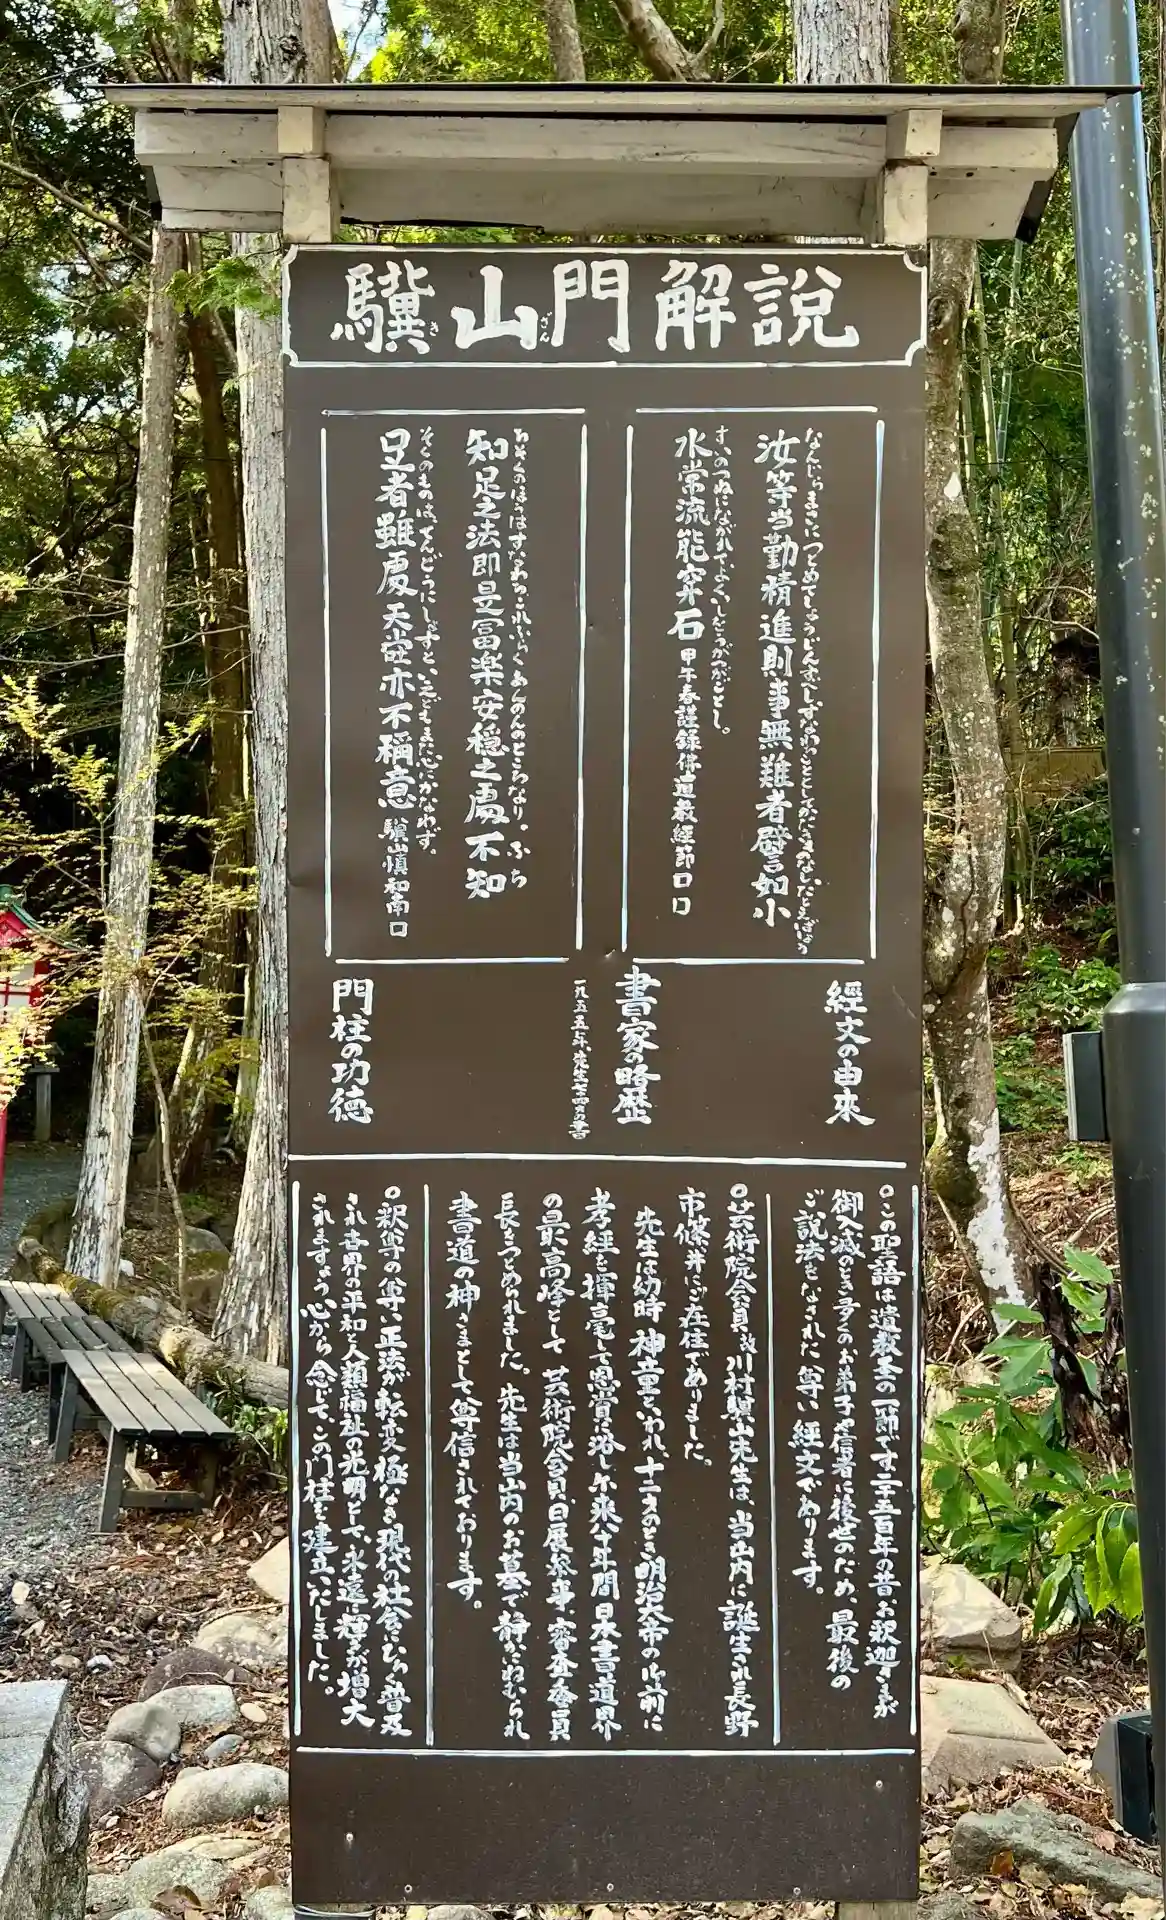 驥山門解説
き ざん
なんじらまさにつとめてしょうじんすべし
汝等当勤精進則事無難者譬如小
すいのつねにながれてよくいしをうがつがごとし。
水常流能穿石 甲午春謹録佛遺教経節 口口
ちそくのほうはすなわちこれふらくあんのんのところなり。ふち
知足之法即是冨楽安穏之處不知
そくのものは、てんどうにしょすといえどもまた心にかなわず。
足者雖處天堂亦不稱意 驥山慎和南 口
經文の由來
書家の略歴
一九五五年、先生七十四才の書
門柱の功徳
○この聖語は遺教圣の一節です二千五百年の昔お釈迦さまが
御入滅のとき多くのお弟子や信者に後世のため、最後の
ご説法をなされた、尊い經文であります。
○芸術院会員、故川村驥山先生は、当山内に誕生され長野
市篠ノ井にご在住でありました。
先生は幼時神童といわれ、十二才のとき明治大帝の御前に
孝経を揮毫して恩賞に浴し尓来八十年間日本書道界
の最高峰として芸術院会員、日展参事、審査委員
長をつとめられました。先生は当山内のお墓で静かにねむられ
書道の神さまとして尊信されております。
○釈尊の尊い正法が転変極なき現代の社会にひろく普及
され世界の平和と人類福祉の光明として、永遠に輝きが増大
されますよう心から念じて、この門柱を建立いたしました。